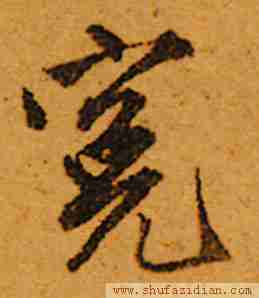 寬
www.shufazidian.com